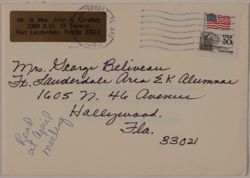 Mr. & Mrs. John A.
2380 S.W. 27 Terrace
Fort Lauderdale, Florida 33312
USA 20c
Mrs. George Beliveau
Ft. Lauderdale Area EK Alumnae
1605 N. 46 Avenue
Hollywood,
Fla.
33021
Read
at April
meeting